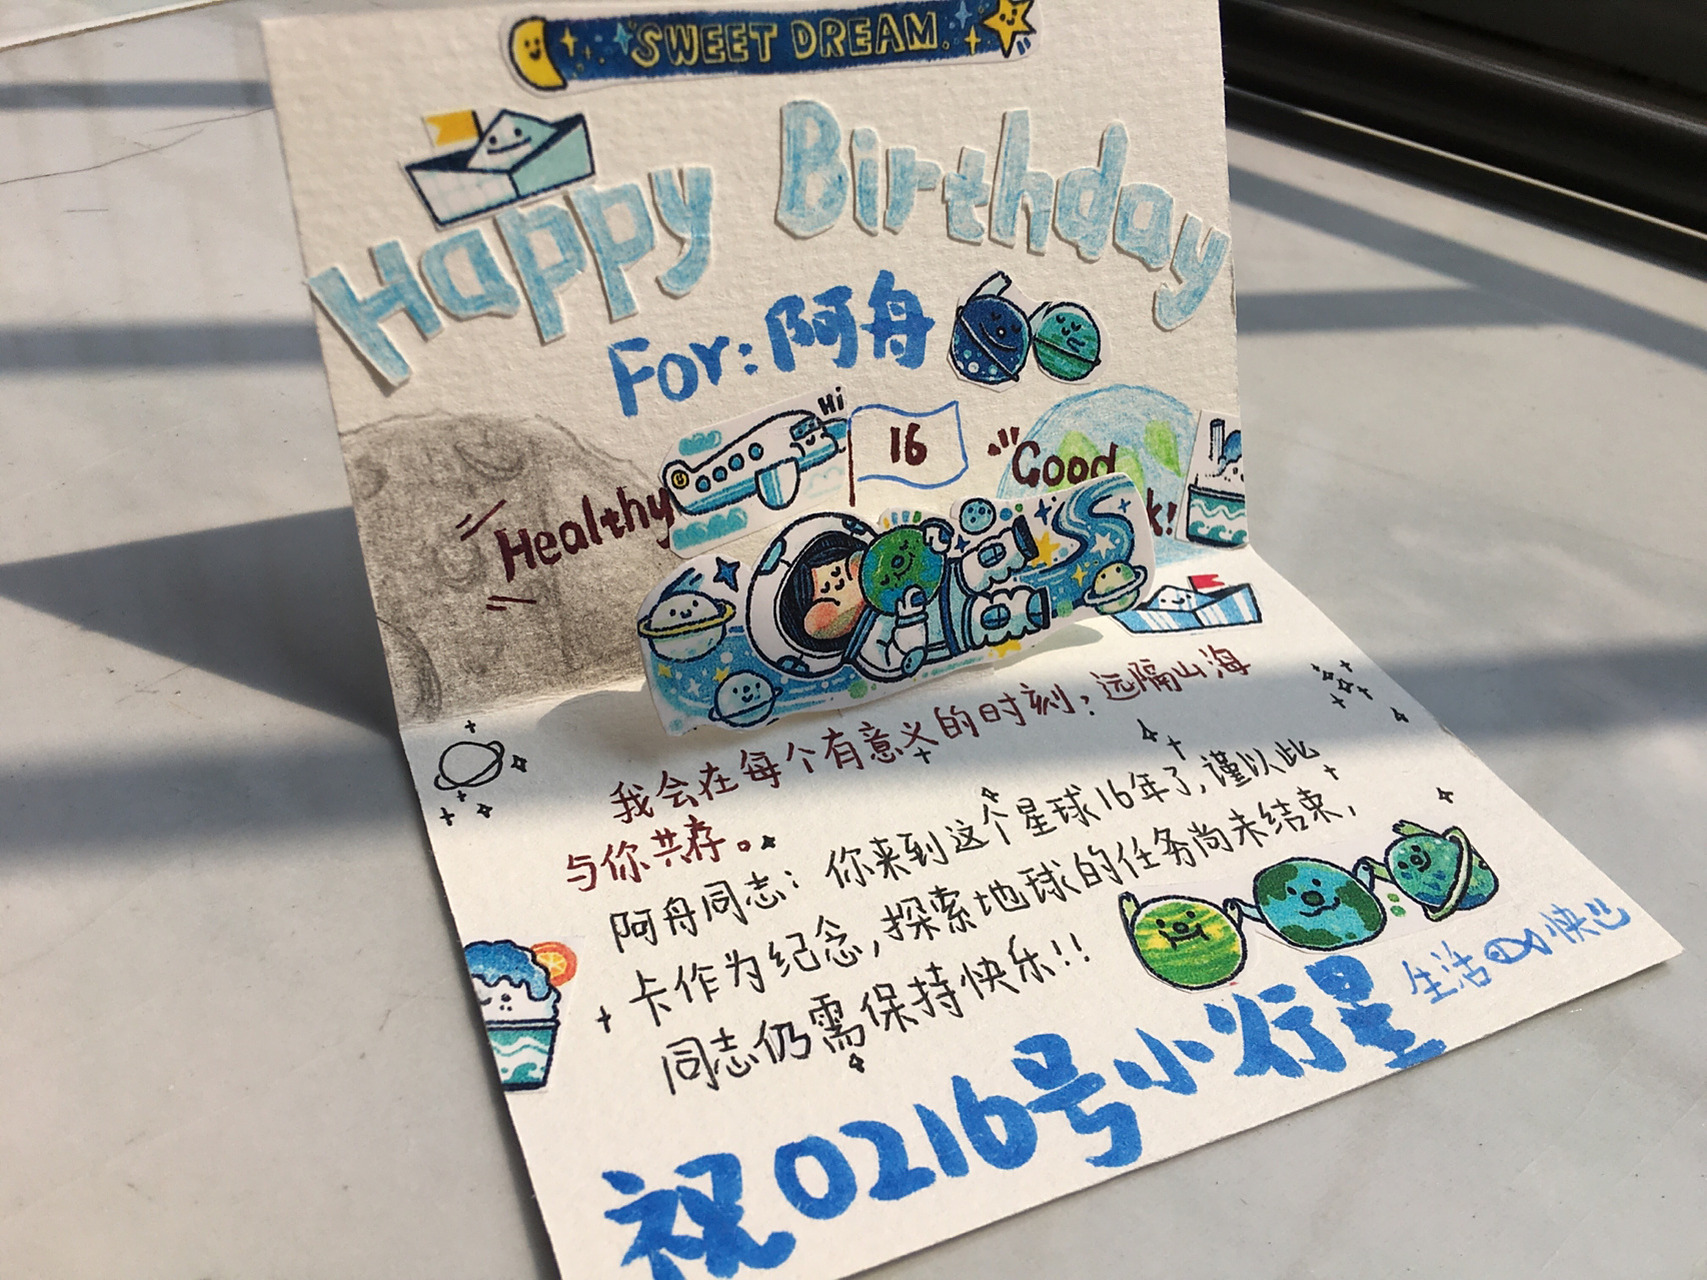 SWEET DREAM.
Happy Birthday
For: 阿舟
Hi
16
Healthy
Good
k!
我会在每个有意义的时刻,远隔山海
与你共存。
阿舟同志:你来到这个星球16年了,谨以此
卡作为纪念,探索地球的任务尚未结束,
同志仍需保持快乐!!
祝0216号小行星
生活 快